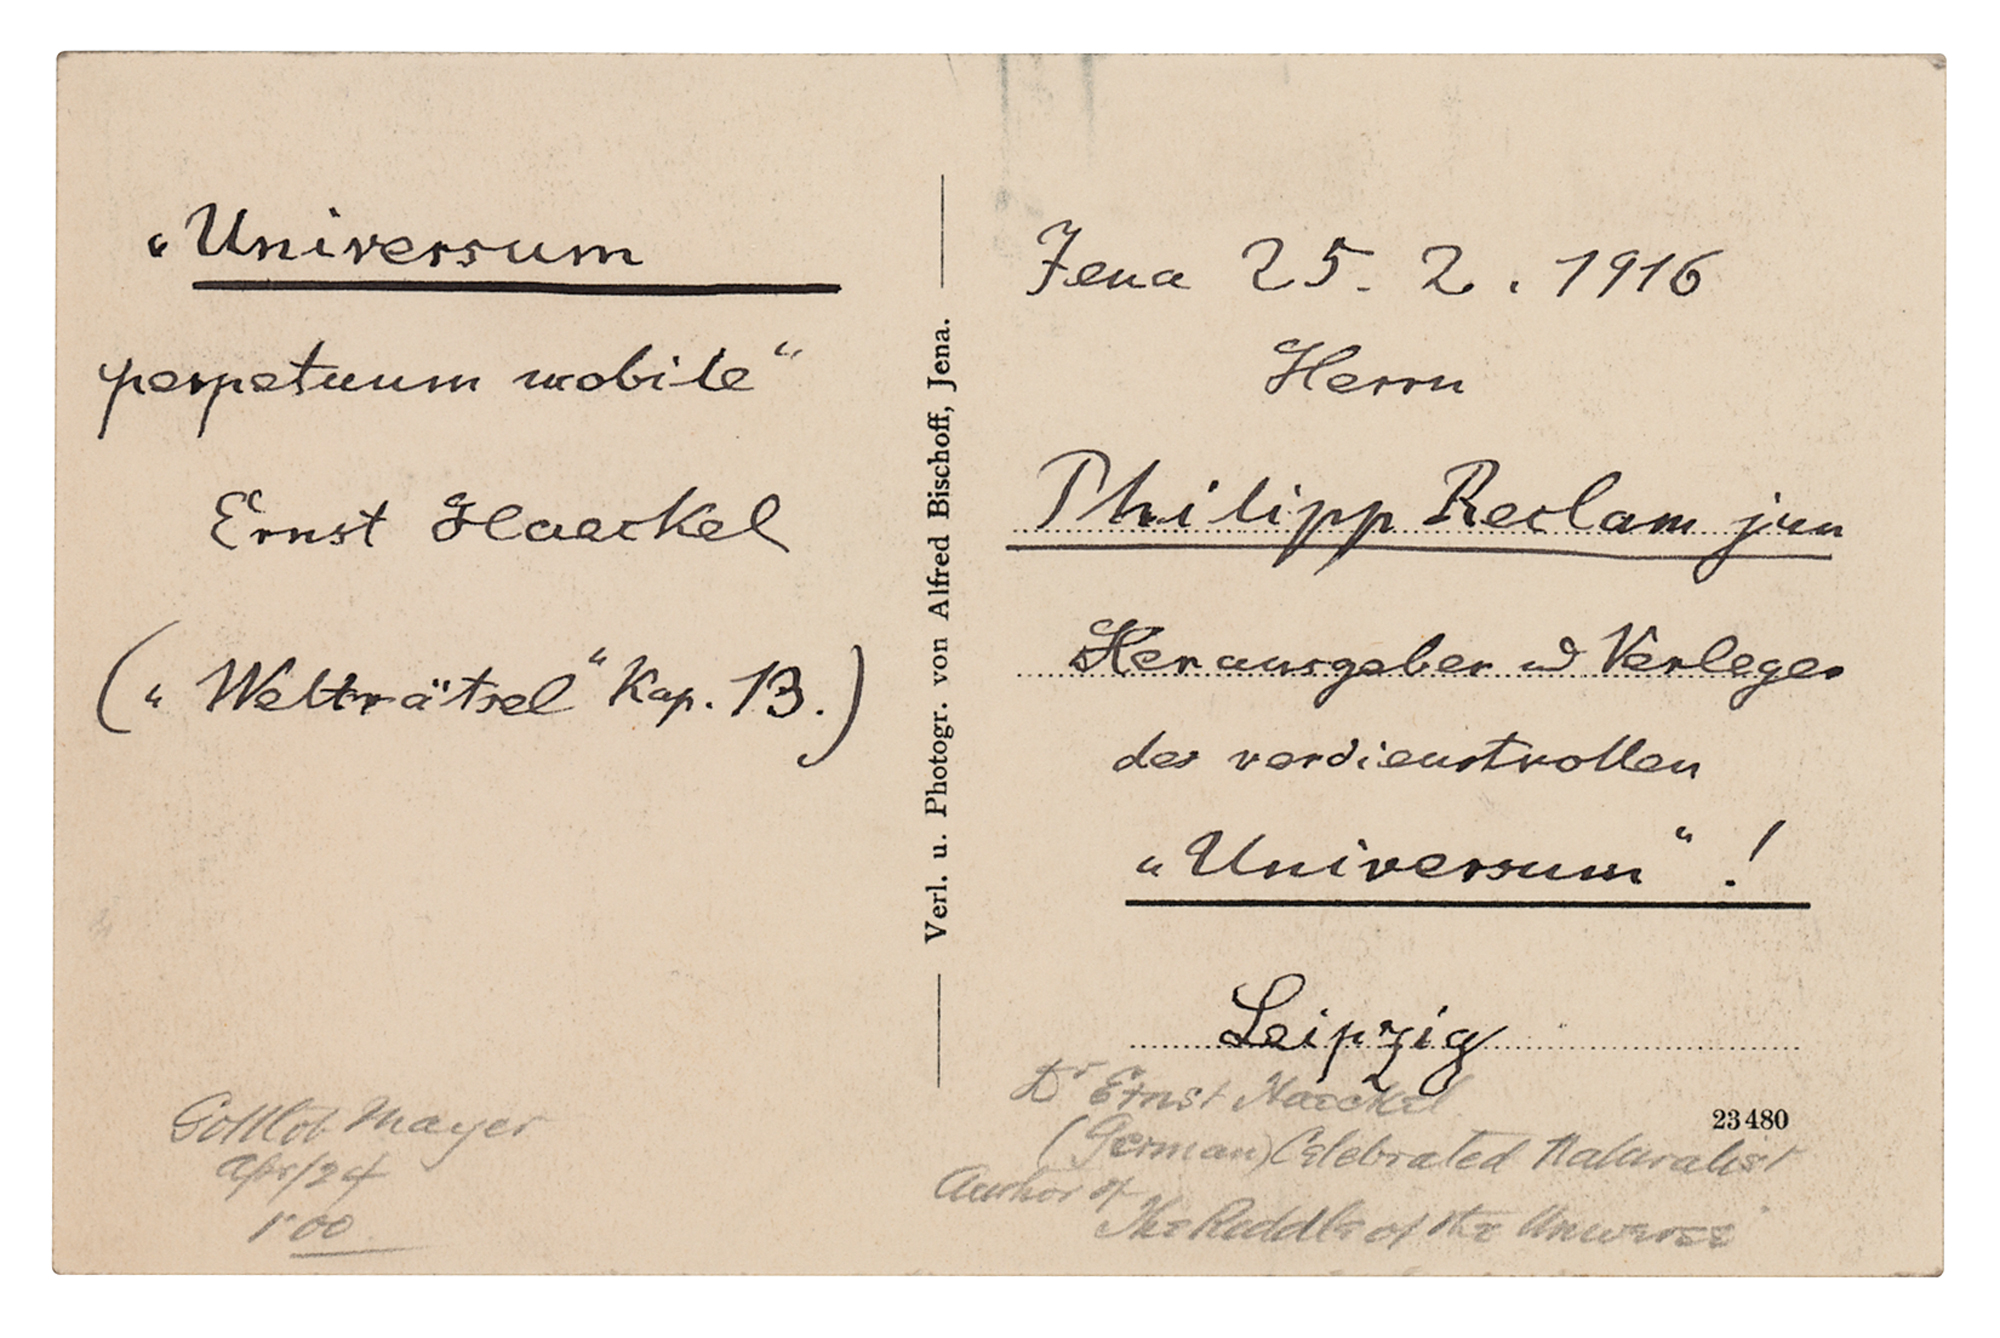 „Universum
perpetuum mobile“
Ernst Haeckel
(„Welträtsel“ Kap. 13.)
Gottlob Mayer
Apr/24
1.00
Verl. u. Photogr. von Alfred Bischoff, Jena.
Jena 25. 2. 1916
Herrn
Philipp Reclam jun
Herausgeber u Verleger
des verdienstvollen
„Universum“!
Leipzig
Dr Ernst Haeckel
23480
(German) Celebrated Naturalist
Author of
The Riddle of the Universe